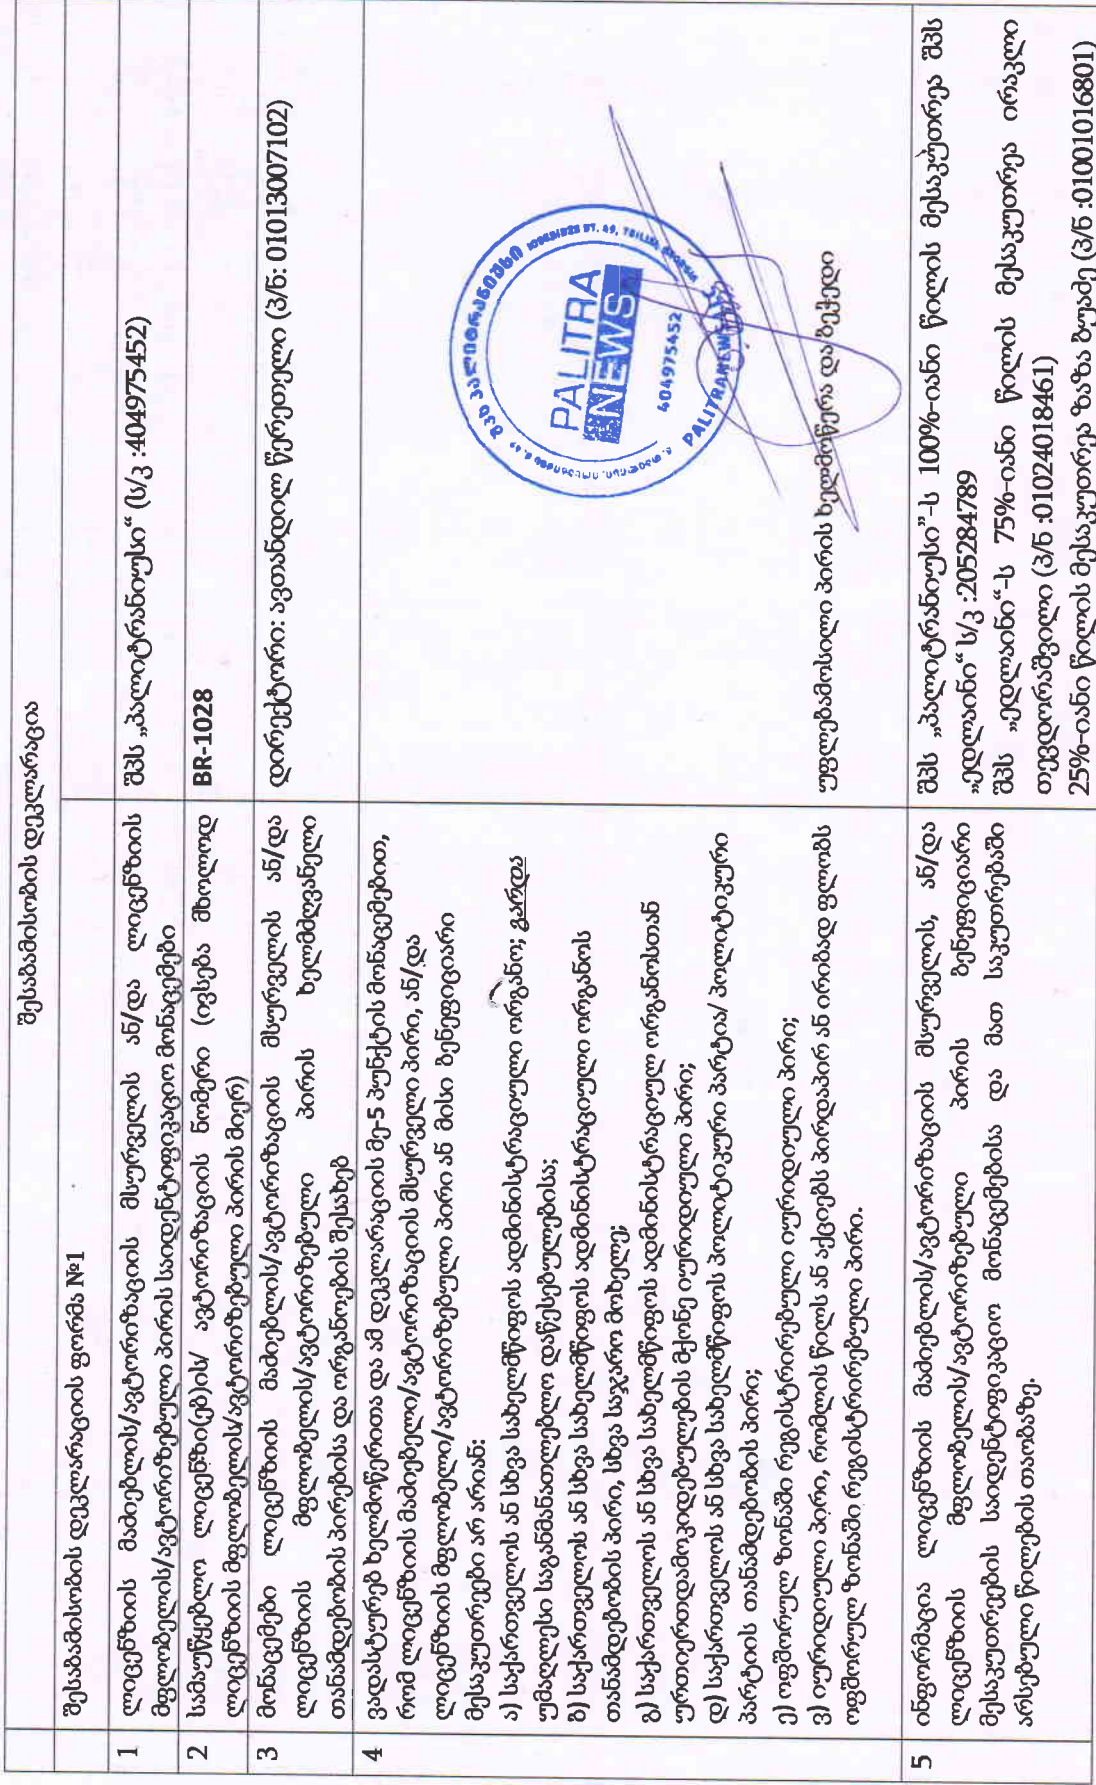 შესაბამისობის დეკლარაცია
შესაბამისობის დეკლარაციის ფორმა №1
1
ლიცენზიის მაძიებლის/ავტორიზაციის მსურველის ან/და ლიცენზიის
მფლობელის/ავტორიზებული პირის საიდენტიფიკაციო მონაცემები
შპს „პალიტრანიუსი“ (ს/კ :404975452)
2
სამაუწყებლო ლიცენზი(ებ)ის/ ავტორიზაციის ნომერი (ივსება მხოლოდ
ლიცენზიის მფლობელის/ავტორიზებული პირის მიერ)
BR-1028
3
მონაცემები ლიცენზიის მაძიებლის/ავტორიზაციის მსურველის ან/და
ლიცენზიის მფლობელის/ავტორიზებული პირის ხელმძღვანელი
თანამდებობის პირებისა და ორგანოების შესახებ
დირექტორი: ავთანდილ წერეთელი (პ/ნ: 01013007102)
4
ვადასტურებ ხელმოწერითა და ამ დეკლარაციის მე-5 პუნქტის მონაცემებით,
რომ ლიცენზიის მაძიებელი/ავტორიზაციის მსურველი პირი, ან/და
ლიცენზიის მფლობელი/ავტორიზებული პირი ან მისი ბენეფიციარი
მესაკუთრეები არ არიან:
ა) საქართველოს ან სხვა სახელმწიფოს ადმინისტრაციული ორგანო; გარდა
უმაღლესი საგანმანათლებლო დაწესებულებისა;
ბ) საქართველოს ან სხვა სახელმწიფოს ადმინისტრაციული ორგანოს
თანამდებობის პირი, სხვა საჯარო მოხელე;
გ) საქართველოს ან სხვა სახელმწიფოს ადმინისტრაციულ ორგანოსთან
ურთიერთდამოკიდებულების მქონე იურიდიული პირი;
დ) საქართველოს ან სხვა სახელმწიფოს პოლიტიკური პარტია/ პოლიტიკური
პარტიის თანამდებობის პირი;
ე) ოფშორულ ზონაში რეგისტრირებული იურიდიული პირი;
ვ) იურიდიული პირი, რომლის წილს ან აქციებს პირდაპირ ან ირიბად ფლობს
ოფშორულ ზონაში რეგისტრირებული პირი.
შპს პალიტრანიუსი
IOSEBIDZE ST. 49, TBILISI, GEORGIA
PALITRA
NEWS
404975452
PALITRANEWS
უფლებამოსილი პირის ხელმოწერა და ბეჭედი
5
ინფორმაცია ლიცენზიის მაძიებლის/ავტორიზაციის მსურველის, ან/და
ლიცენზიის მფლობელის/ავტორიზებული პირის ბენეფიციარი
მესაკუთრების საიდენტიფიკაციო მონაცემებისა და მათ საკუთრებაში
არსებული წილების თაობაზე.
შპს „პალიტრანიუსი”-ს 100%-იანი წილის მესაკუთრეა შპს
„ედლაინი“ ს/კ :205284789
შპს „ედლაინი“-ს 75%-იანი წილის მესაკუთრეა ირაკლი
თევდორაშვილი (პ/ნ :01024018461)
25%-იანი წილის მესაკუთრეა ზაზა ბუაძე (პ/ნ :01001016801)